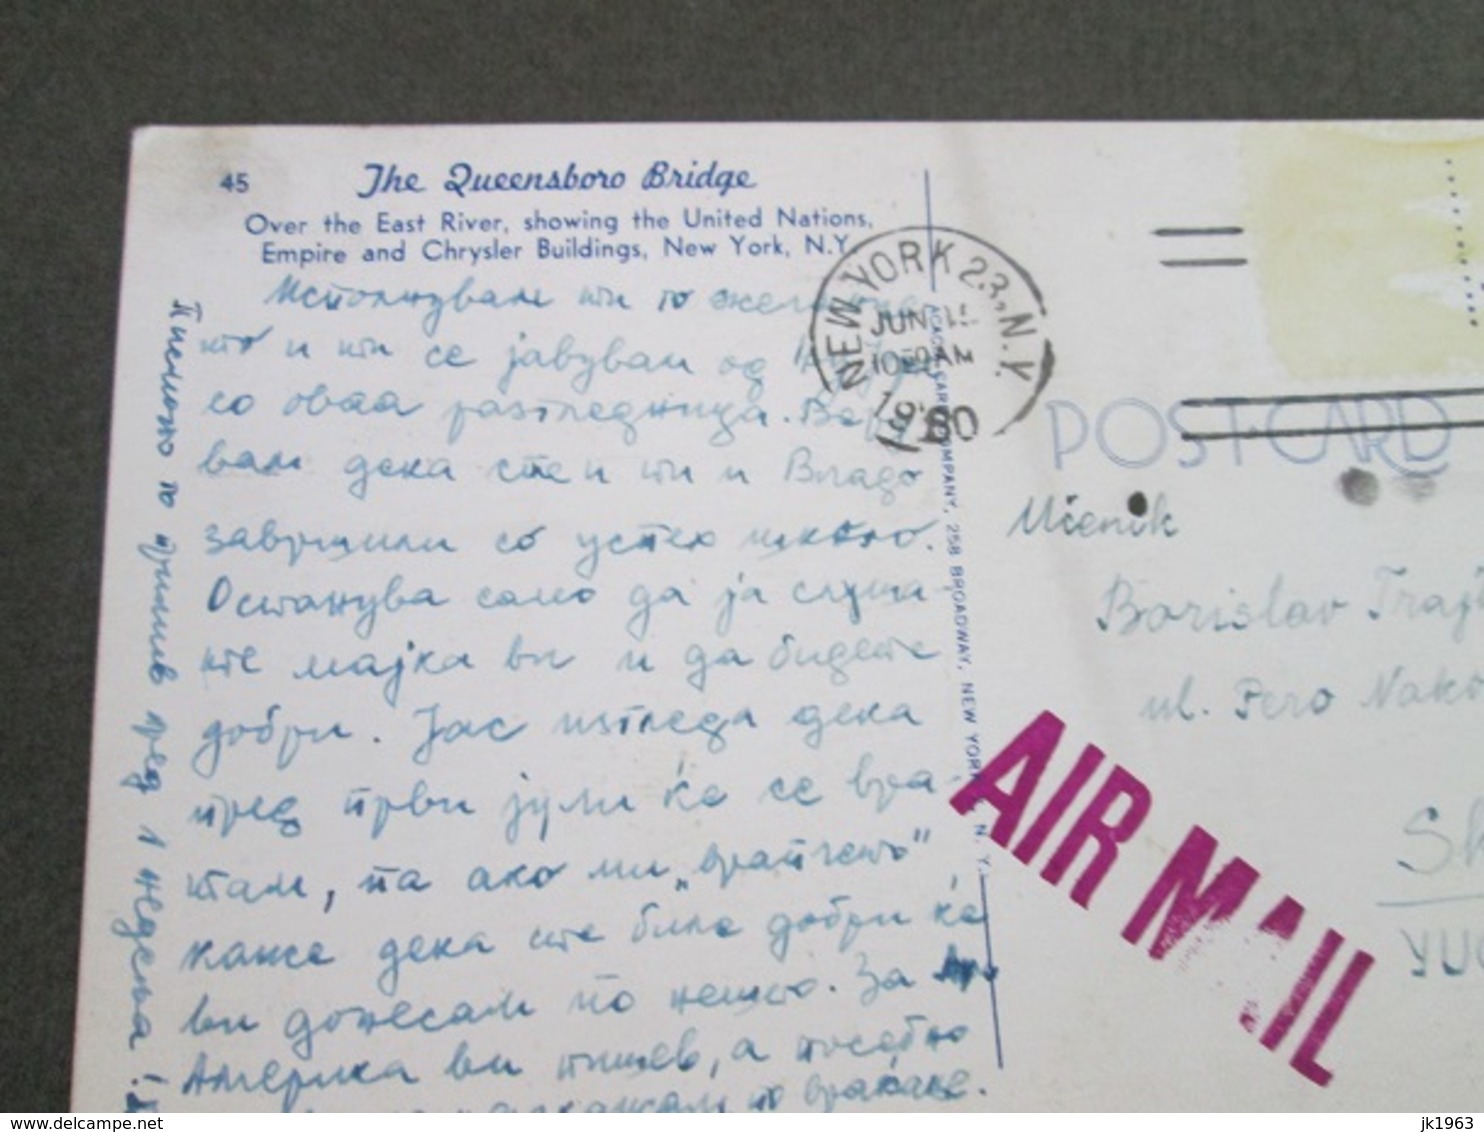 45 The Queensboro Bridge
Over the East River, showing the United Nations,
Empire and Chrysler Buildings, New York, N.Y.
Исполнувам ти ја
што и ти се јавувам од
со оваа разгледница. Веру
вам дека сте и ти и Владо
завршили со успех школо.
Останува само да ја слуша-
те мајка ви и да бидете
добри. Јас изгледа дека
пред први јули ќе се вра-
там, па ако ми „братчето"
каже дека сте биле добри ќе
ви донесам по нешто. За
Америка ви пишев, а посебно
раскажам по враќање.
Писмото го примив пред 1 недеља!
NEW YORK 23, N.Y.
JUN
AM
1960
COMPANY, 258 BROADWAY, NEW YORK N. Y.
POST CARD
Učenik
Borislav Traj
ul. Pero Nako
Sk
YU
AIR MAIL
delcampe.net
jk1963